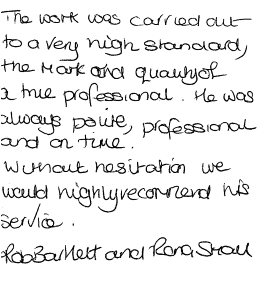 The work was carried out
to a very high standard,
the mark and quality of
a true professional. He was
always polite, professional
and on time.
Without hesitation we
would highly recommend his
service.
Rob Bartlett and Rona